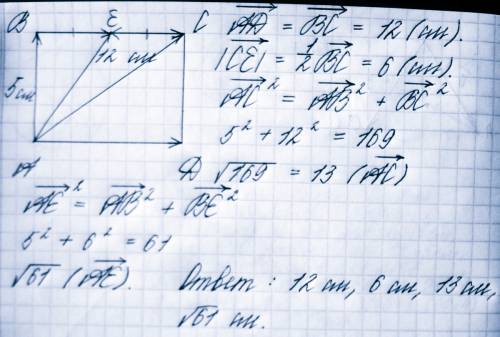 B E C
12 см
5 см
A D
AD = BC = 12 (см).
|CE| = 1/2 BC = 6 (см).
AC² = AB² + BC²
5² + 12² = 169
√169 = 13 (AC)
AE² = AB² + BE²
5² + 6² = 61
√61 (AE).
Ответ: 12 см, 6 см, 13 см,
√61 см.